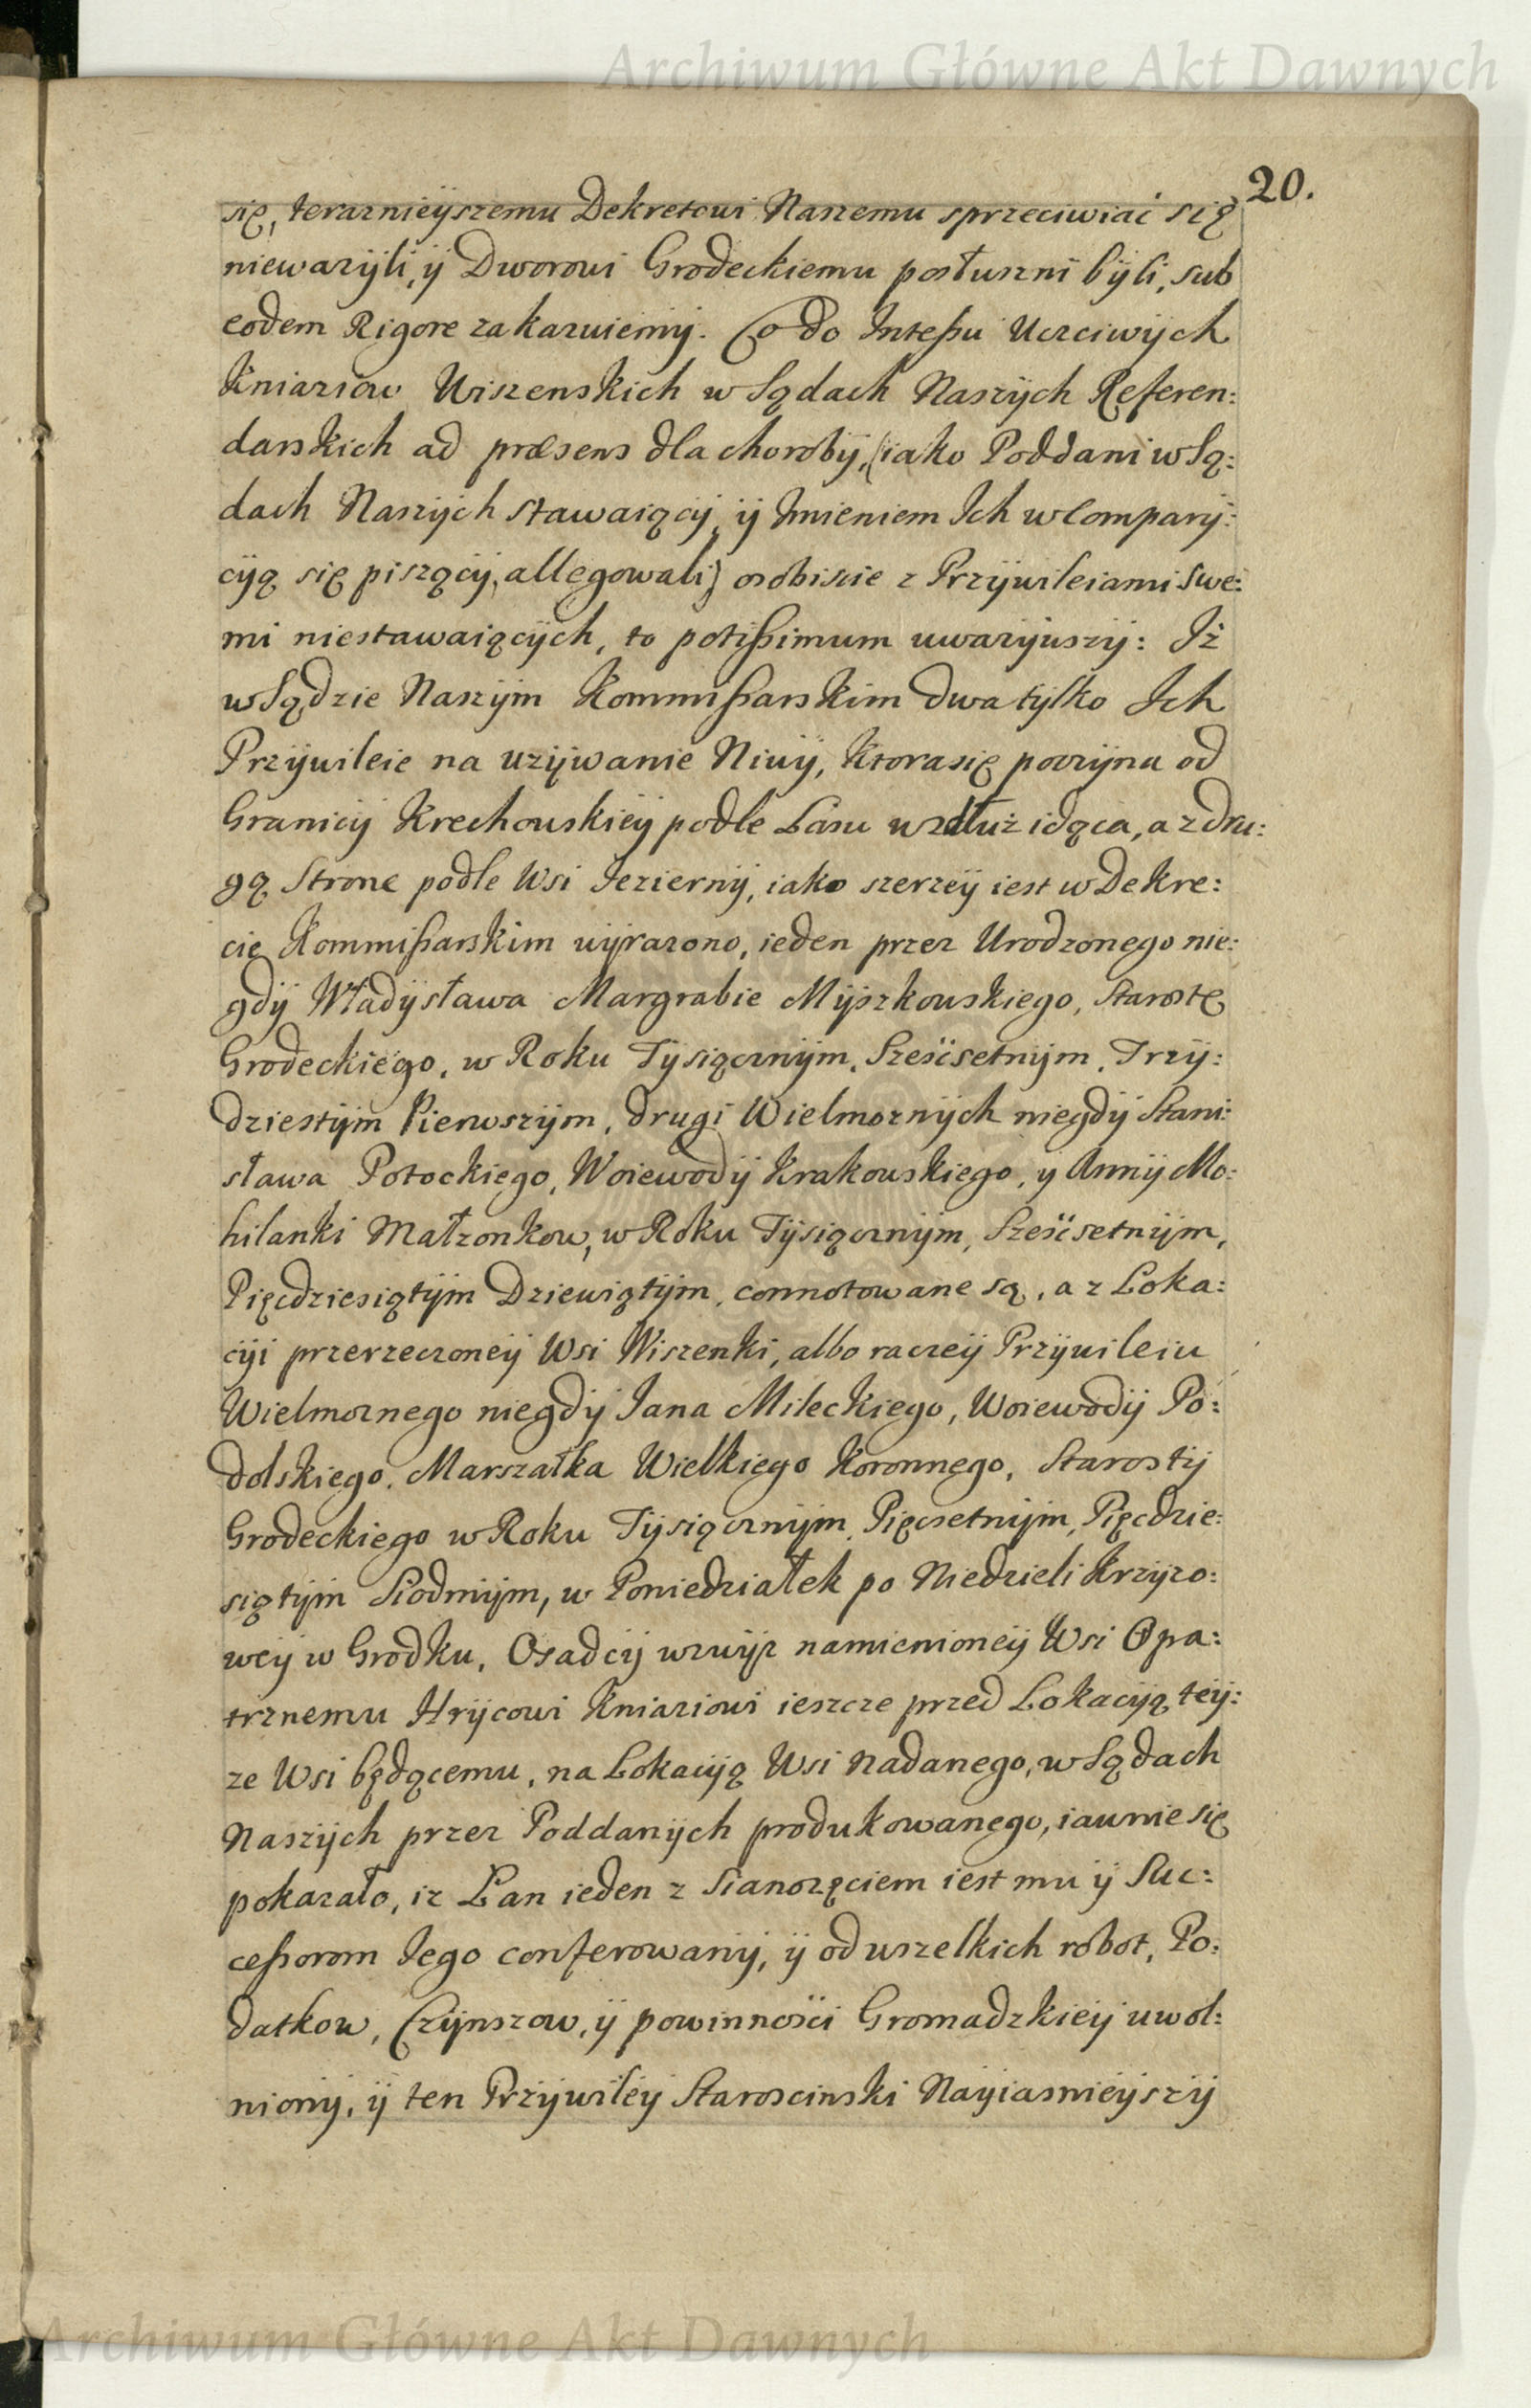 Archiwum Główne Akt Dawnych
20.
się, teraznieÿszemu Dekretowi Naszemu sprzeciwiać się
niewazÿli, ÿ Dworowi Grodeckiemu posłuszni bÿli, sub
eodem Rigore zakazuiemÿ. Co do Inteßu Uczciwÿch
Kniaziow Wiszenskich w Sądach Naszÿch Referen:
darskich ad præsens dla chorobÿ, (iako Poddani w Są:
dach Naszÿch stawaiącÿ, ÿ Imieniem Ich w Comparÿ:
cÿą się piszącÿ, allegowali) osobiscie z Przÿwileiami swe:
mi niestawaiącÿch, to potißimum uwazÿwszÿ: Iż
w Sądzie Naszÿm Kommißarskim dwa tÿlko Ich
Przÿwileie na uzÿwanie Niwÿ, ktora się poczÿna od
Granicÿ Krechowskieÿ podle Lasu wzdłuż idąca, a z dru:
gą Strone podle Wsi Iezierny, iako szerzeÿ iest w Dekre:
cie Kommißarskim wÿrazono, ieden przez Urodzonego nie:
gdÿ Władÿsława Margrabie Mÿszkowskiego, Starostę
Grodeckiego, w Roku Tÿsiącznÿm, Sześćsetnÿm, Trzÿ:
dziestÿm Pierwszÿm, drugi Wielmoznÿch niegdÿ Stani:
sława Potockiego, Woiewodÿ Krakowskiego, y Annÿ Mo:
hilanki Małzonkow, w Roku Tÿsiącznÿm, Sześćsetnÿm,
Pięcdziesiątÿm Dziewiątÿm, connotowane są, a z Loka:
cÿi przerzeczoneÿ Wsi Wiszenki, albo raczeÿ Przÿwileiu
Wielmoznego niegdÿ Iana Mileckiego, Woiewodÿ Po:
dolskiego, Marszałka Wielkiego Koronnego, Starostÿ
Grodeckiego w Roku Tÿsiącznÿm, Pięcsetnÿm, Pięcdzie:
siątÿm Siodmÿm, w Poniedziałek po Niedzieli Krzÿzo:
weÿ w Grodku, Osadcÿ wzwÿz namienioneÿ Wsi Opa:
trznemu Hrÿcowi Kniaziowi ieszcze przed Lokacÿą teÿ:
ze Wsi będącemu, na Lokacÿą Wsi nadanego, w Sądach
Naszÿch przez Poddanÿch produkowanego, iawnie się
pokazało, iz Łan ieden z Sianozęciem iest mu ÿ Suc:
ceßorom Iego conferowanÿ, ÿ od wszelkich robot, Po:
datkow, Czÿnszow, ÿ powinności Gromadzkieÿ uwol:
nionÿ, ÿ ten Przÿwileÿ Staroscinski Naÿiasnieÿszÿ
Archiwum Główne Akt Dawnych